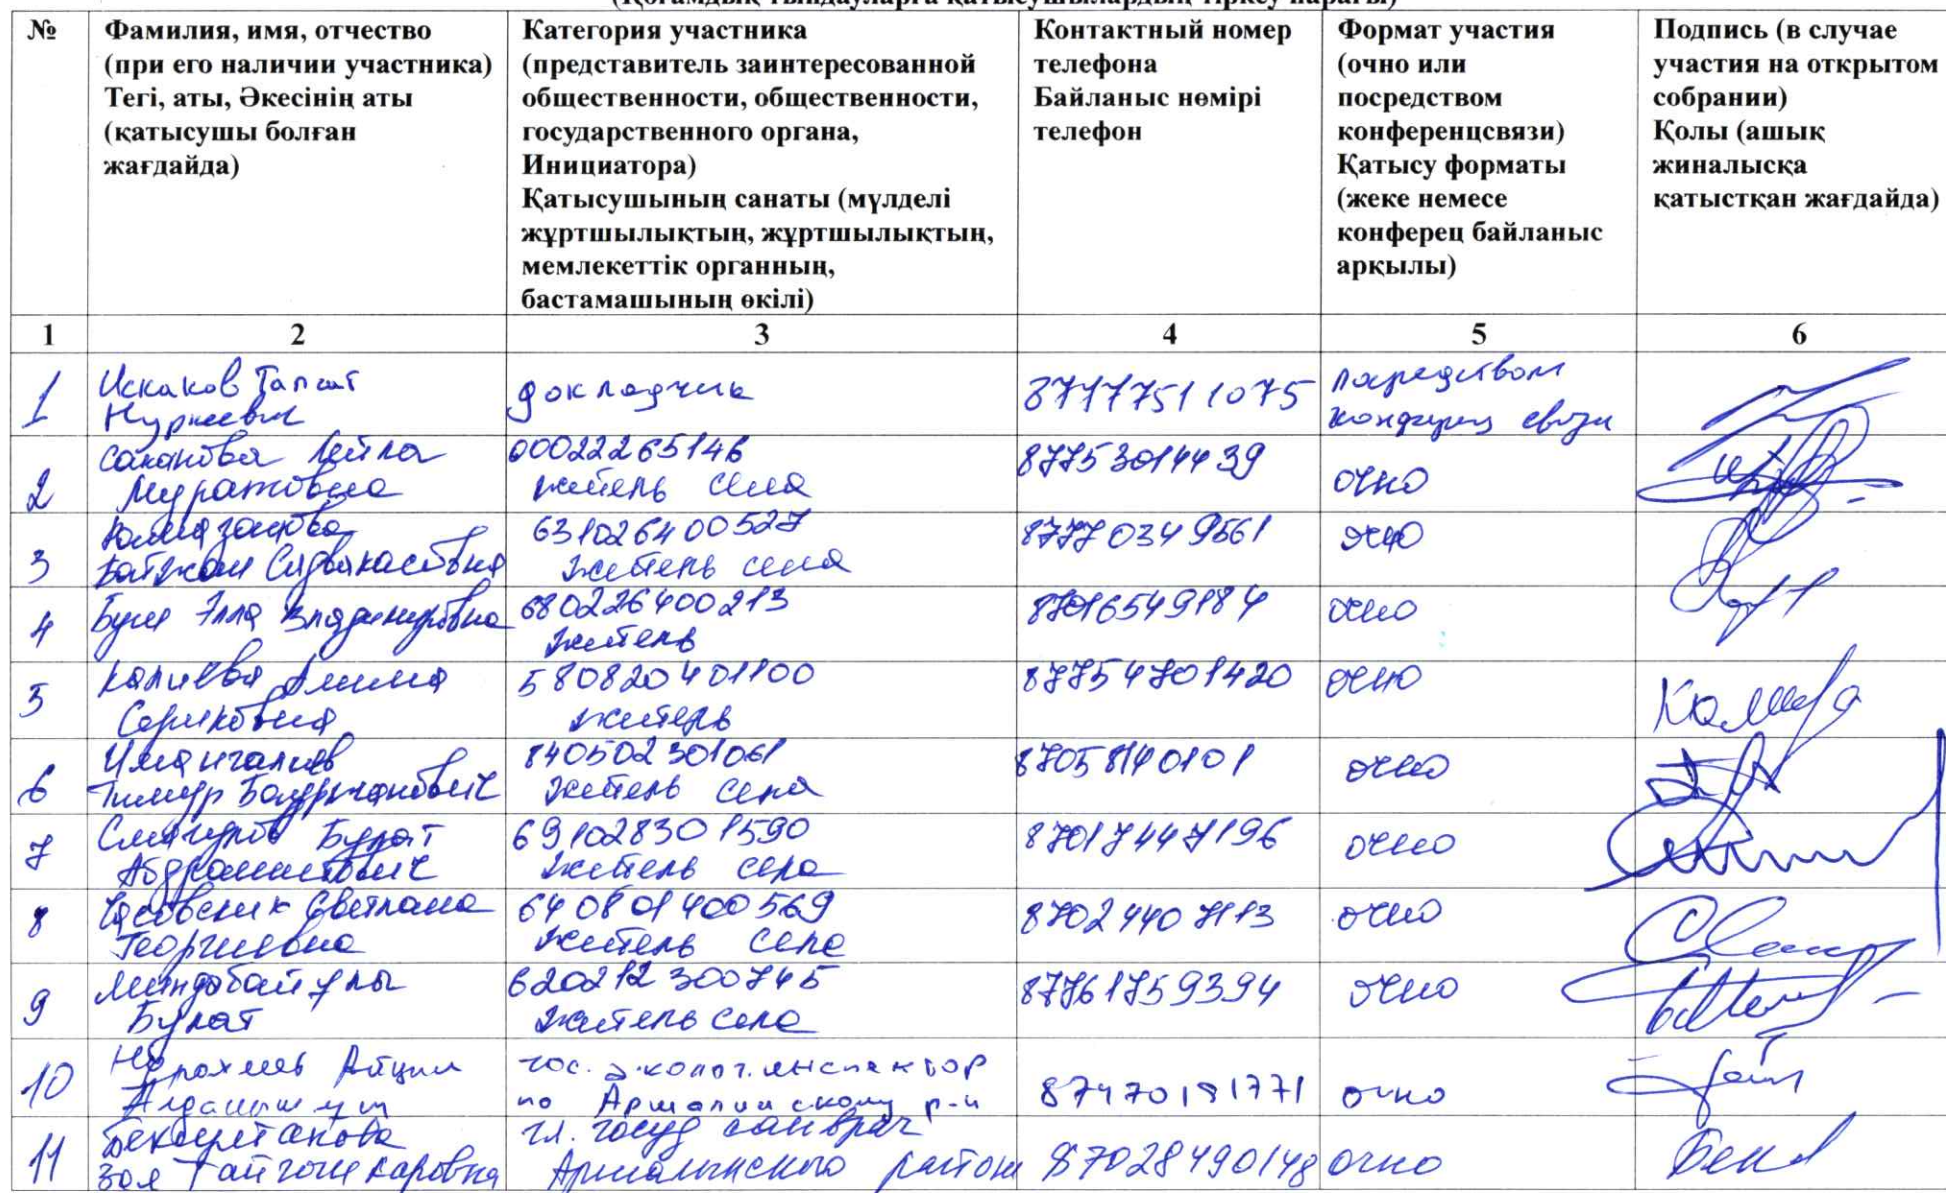 (Қоғамдық тыңдауларға қатысушылардың тіркеу парағы)
№
Фамилия, имя, отчество
(при его наличии участника)
Тегі, аты, Әкесінің аты
(қатысушы болған
жағдайда)
Категория участника
(представитель заинтересованной
общественности, общественности,
государственного органа,
Инициатора)
Қатысушының санаты (мүлделі
жұртшылықтың, жұртшылықтың,
мемлекеттік органның,
бастамашының өкілі)
Контактный номер
телефона
Байланыс нөмірі
телефон
Формат участия
(очно или
посредством
конференцсвязи)
Қатысу форматы
(жеке немесе
конферец байланыс
арқылы)
Подпись (в случае
участия на открытом
собрании)
Қолы (ашық
жиналысқа
қатыстқан жағдайда)
1 2 3 4 5 6
1
Искаков Талгат
докладчик
87177511075
посредством
конференц связи
2
Саканова Лейла
Муратовна
000222651146
житель села
87753014439
очно
3
631026400527
житель села
87770349561
очно
4
Буш Элла Владимировна
680226400213
житель
87016549184
очно
5
Калиева Алима
Сериковна
580820401100
житель
87754701420
очно
6
Имангалиев
Тимур Бауржанович
840502301061
житель села
87058140101
очно
7
Смагулов Булат
Абдрашитович
691028301590
житель села
87017447196
очно
8
Часовских Светлана
Георгиевна
640801400569
житель села
87024407113
очно
9
Миндобайұлы
Булат
620212300745
житель села
87761759394
очно
10
гос. эколог. инспектор
по Аршалинскому р-н
87470191771
очно
11
Зоя
гл. госуд санврач
Аршалынского района
87028490148
очно